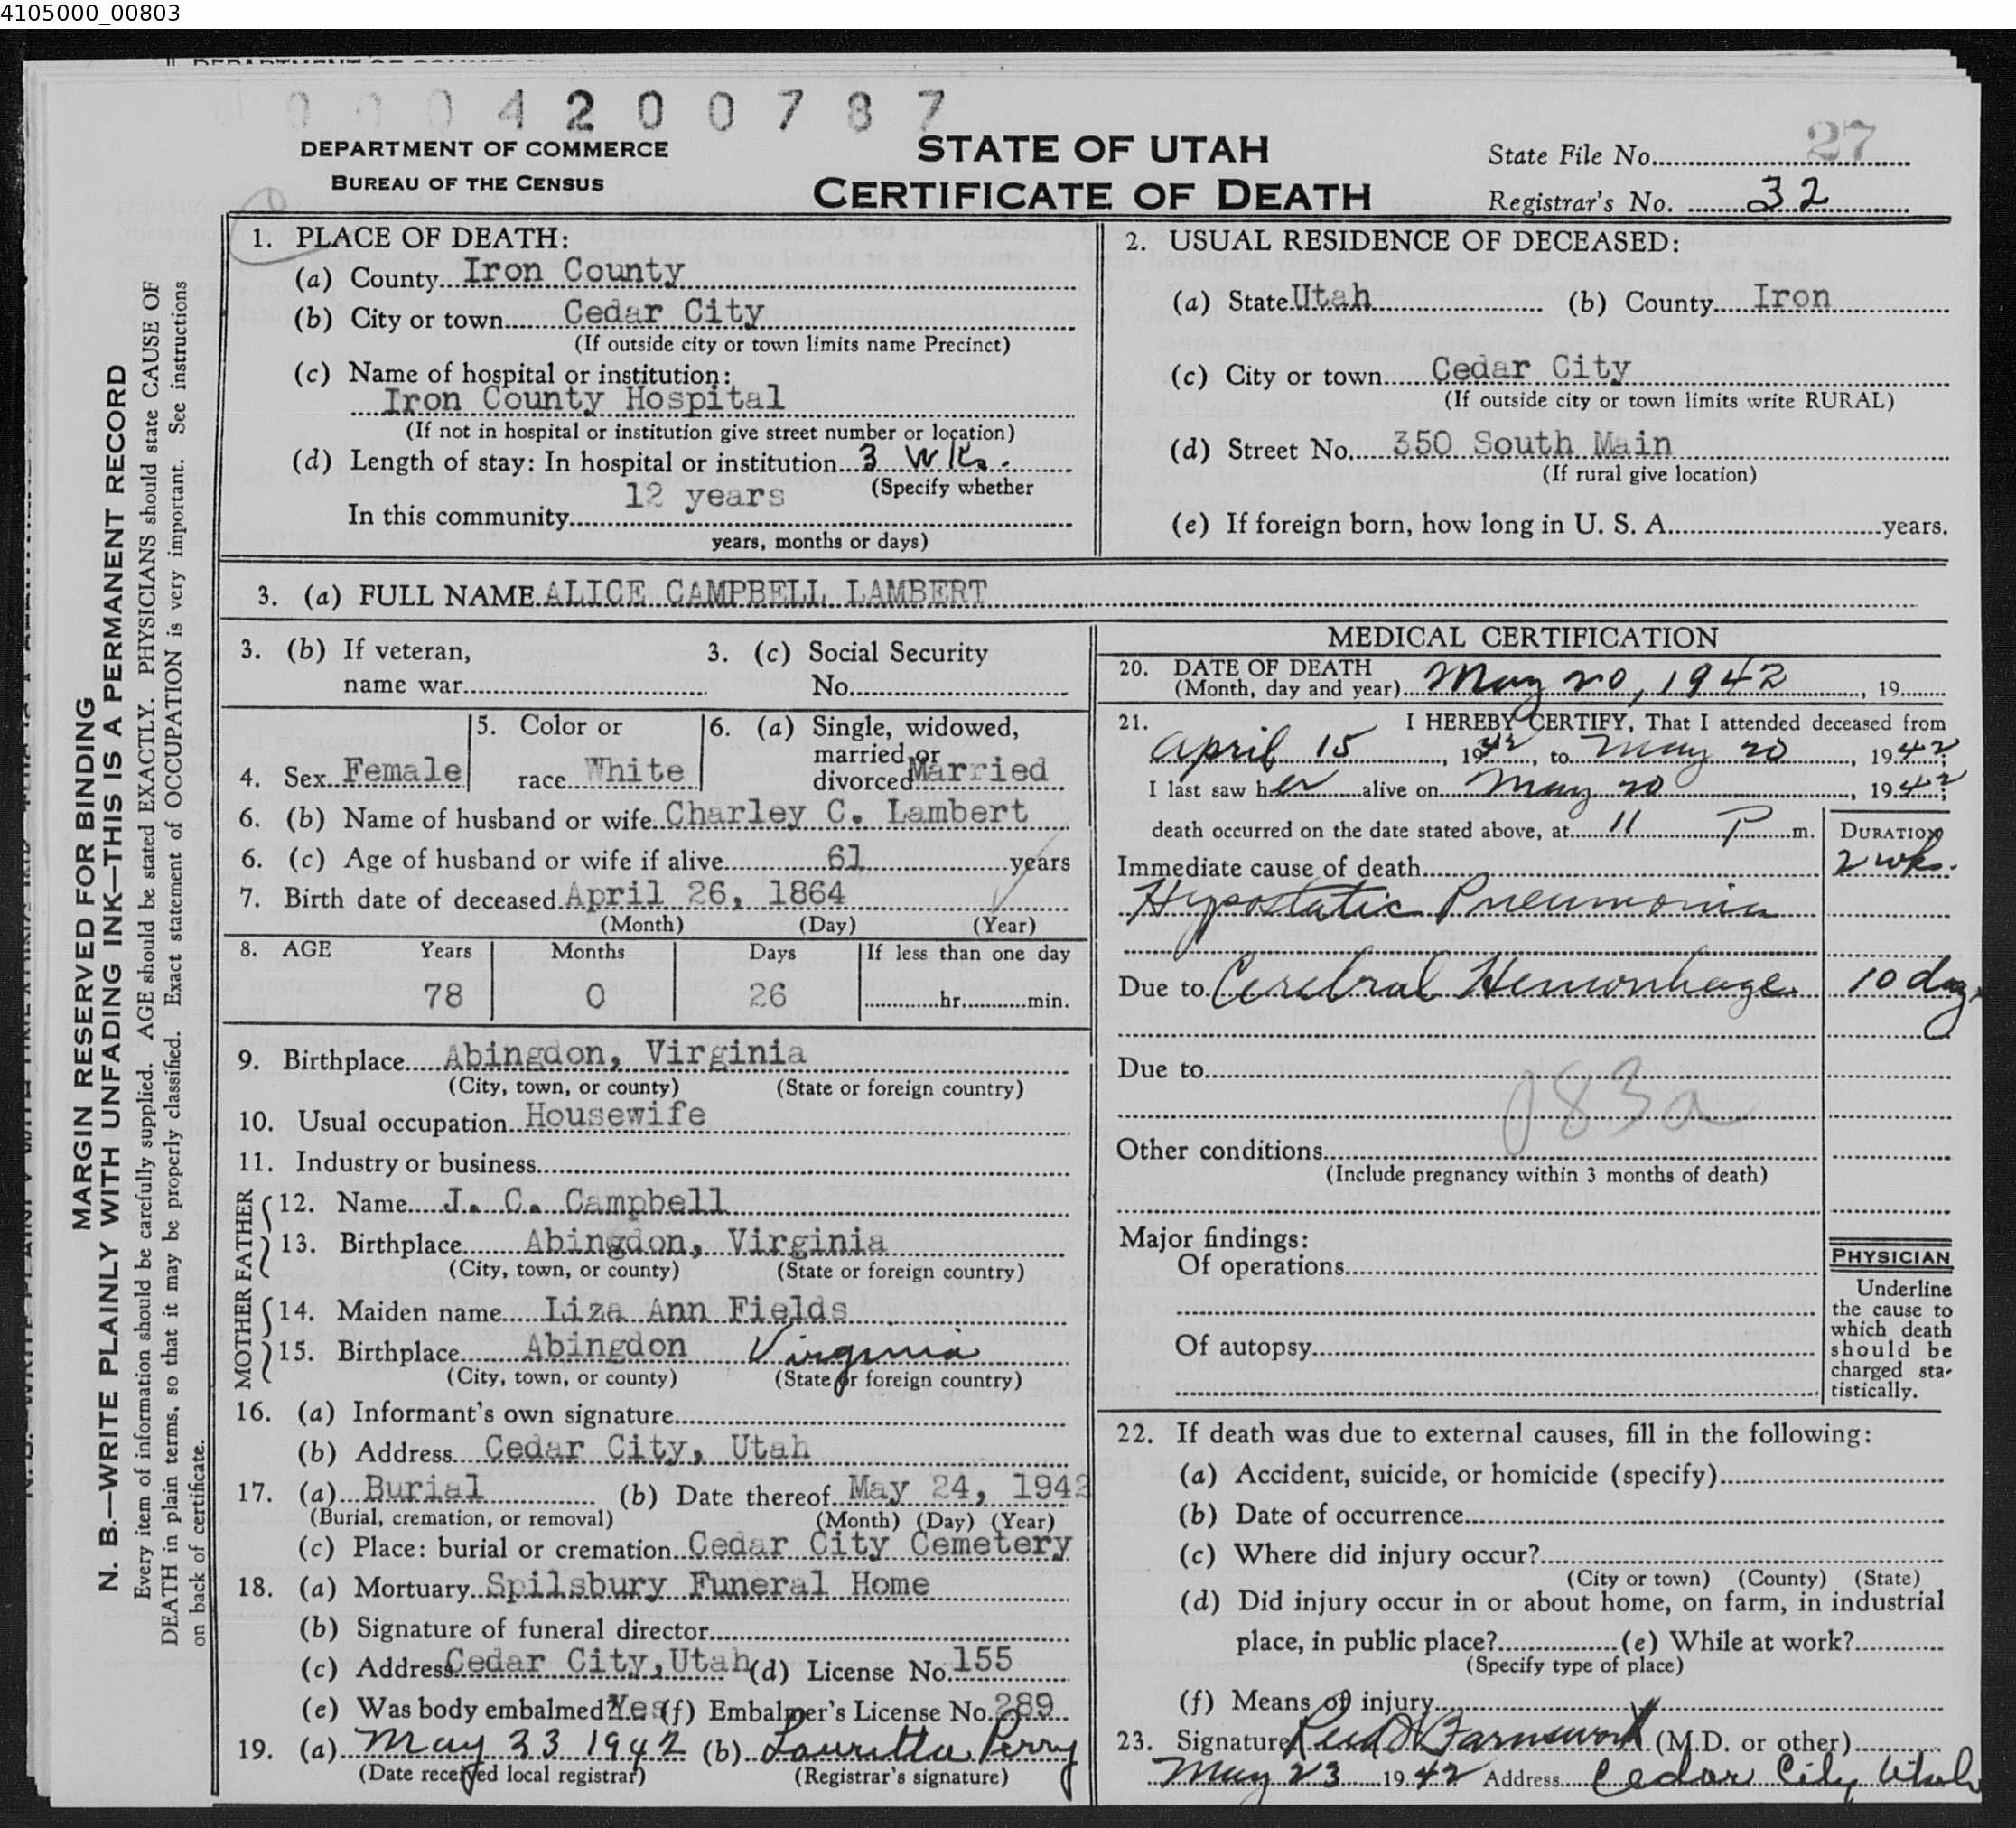 4105000_00803
0004200787
DEPARTMENT OF COMMERCE
BUREAU OF THE CENSUS
STATE OF UTAH
CERTIFICATE OF DEATH
State File No. 27
Registrar's No. 32
MARGIN RESERVED FOR BINDING
N. B.—WRITE PLAINLY WITH UNFADING INK—THIS IS A PERMANENT RECORD
Every item of information should be carefully supplied. AGE should be stated EXACTLY. PHYSICIANS should state CAUSE OF
DEATH in plain terms, so that it may be properly classified. Exact statement of OCCUPATION is very important. See instructions
on back of certificate.
1. PLACE OF DEATH:
(a) County Iron County
(b) City or town Cedar City
(If outside city or town limits name Precinct)
(c) Name of hospital or institution:
Iron County Hospital
(If not in hospital or institution give street number or location)
(d) Length of stay: In hospital or institution 3 wks.
(Specify whether
In this community 12 years
years, months or days)
2. USUAL RESIDENCE OF DECEASED:
(a) State Utah (b) County Iron
(c) City or town Cedar City
(If outside city or town limits write RURAL)
(d) Street No. 350 South Main
(If rural give location)
(e) If foreign born, how long in U. S. A. years.
3. (a) FULL NAME ALICE CAMPBELL LAMBERT
3. (b) If veteran,
name war
3. (c) Social Security
No.
4. Sex Female
5. Color or
race White
6. (a) Single, widowed,
married or
divorced Married
6. (b) Name of husband or wife Charley C. Lambert
6. (c) Age of husband or wife if alive 61 years
7. Birth date of deceased April 26, 1864
(Month) (Day) (Year)
8. AGE Years Months Days If less than one day
78 0 26 hr. min.
9. Birthplace Abingdon, Virginia
(City, town, or county) (State or foreign country)
10. Usual occupation Housewife
11. Industry or business
FATHER
12. Name J. C. Campbell
13. Birthplace Abingdon, Virginia
(City, town, or county) (State or foreign country)
MOTHER
14. Maiden name Liza Ann Fields
15. Birthplace Abingdon Virginia
(City, town, or county) (State or foreign country)
16. (a) Informant's own signature
(b) Address Cedar City, Utah
17. (a) Burial (b) Date thereof May 24, 1942
(Burial, cremation, or removal) (Month) (Day) (Year)
(c) Place: burial or cremation Cedar City Cemetery
18. (a) Mortuary Spilsbury Funeral Home
(b) Signature of funeral director
(c) Address Cedar City, Utah (d) License No. 155
(e) Was body embalmed? Yes (f) Embalmer's License No. 289
19. (a) May 23 1942 (b) Lauretta Perry
(Date received local registrar) (Registrar's signature)
MEDICAL CERTIFICATION
20. DATE OF DEATH
(Month, day and year) May 20, 1942, 19
21. I HEREBY CERTIFY, That I attended deceased from
April 15, 1942, to May 20, 1942;
I last saw her alive on May 20, 1942;
death occurred on the date stated above, at 11 P m.
DURATION
Immediate cause of death 2 wks.
Hypostatic Pneumonia
Due to Cerebral Hemorrhage 10 days
Due to
083a
Other conditions
(Include pregnancy within 3 months of death)
Major findings:
Of operations
Of autopsy
PHYSICIAN
Underline
the cause to
which death
should be
charged sta-
tistically.
22. If death was due to external causes, fill in the following:
(a) Accident, suicide, or homicide (specify)
(b) Date of occurrence
(c) Where did injury occur?
(City or town) (County) (State)
(d) Did injury occur in or about home, on farm, in industrial
place, in public place? (e) While at work?
(Specify type of place)
(f) Means of injury
23. Signature Reid Farnsworth (M.D. or other)
May 23 1942 Address Cedar City Utah